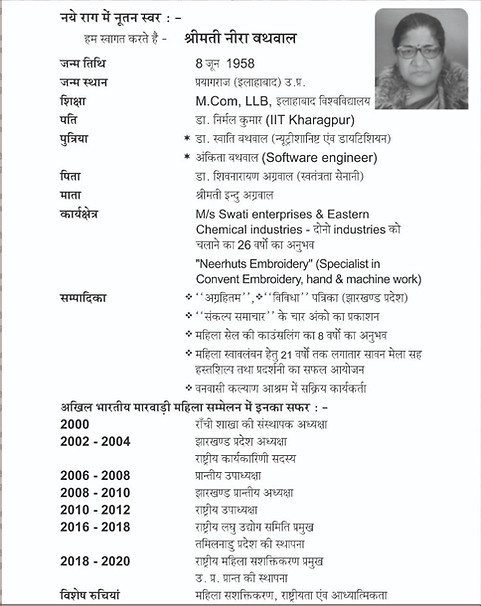 नये राग में नूतन स्वर : -
हम स्वागत करते है - श्रीमती नीरा बथवाल
जन्म तिथि 8 जून 1958
जन्म स्थान प्रयागराज (इलाहाबाद) उ.प्र.
शिक्षा M.Com, LLB, इलाहाबाद विश्वविद्यालय
पति डा. निर्मल कुमार (IIT Kharagpur)
पुत्रिया * डा. स्वाति बथवाल (न्यूट्रीशानिष्ट एंव डायटिशियन)
* अंकिता बथवाल (Software engineer)
पिता डा. शिवनारायण अग्रवाल (स्वतंत्रता सेनानी)
माता श्रीमती इन्दु अग्रवाल
कार्यक्षेत्र M/s Swati enterprises & Eastern
Chemical industries - दोनो industries को
चलाने का 26 वर्षो का अनुभव
"Neerhuts Embroidery" (Specialist in
Convent Embroidery, hand & machine work)
सम्पादिका ❖ ‘‘अग्रहितम’’,❖‘‘विविधा’’ पत्रिका (झारखण्ड प्रदेश)
❖ ‘‘संकल्प समाचार’’ के चार अंको का प्रकाशन
❖ महिला सेल की काउंसलिंग का 8 वर्षो का अनुभव
❖ महिला स्वावलंबन हेतु 21 वर्षो तक लगातार सावन मेला सह
हस्तशिल्प तथा प्रदर्शनी का सफल आयोजन
❖ वनवासी कल्याण आश्रम में सक्रिय कार्यकर्ता
अखिल भारतीय मारवाड़ी महिला सम्मेलन में इनका सफर : -
2000 राँची शाखा की संस्थापक अध्यक्षा
2002 - 2004 झारखण्ड प्रदेश अध्यक्षा
राष्ट्रीय कार्यकारिणी सदस्य
2006 - 2008 प्रान्तीय उपाध्यक्षा
2008 - 2010 झारखण्ड प्रान्तीय अध्यक्षा
2010 - 2012 राष्ट्रीय उपाध्यक्षा
2016 - 2018 राष्ट्रीय लघु उद्योग समिति प्रमुख
तमिलनाडु प्रदेश की स्थापना
2018 - 2020 राष्ट्रीय महिला सशक्तिकरण प्रमुख
उ. प्र. प्रान्त की स्थापना
विशेष रुचियां महिला सशक्तिकरण, राष्ट्रीयता एंव आध्यात्मिकता